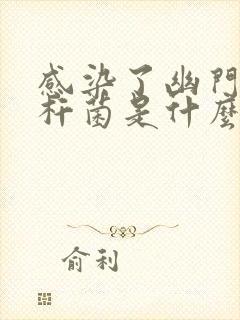 感染了幽門
杆菌是什麼
俞利